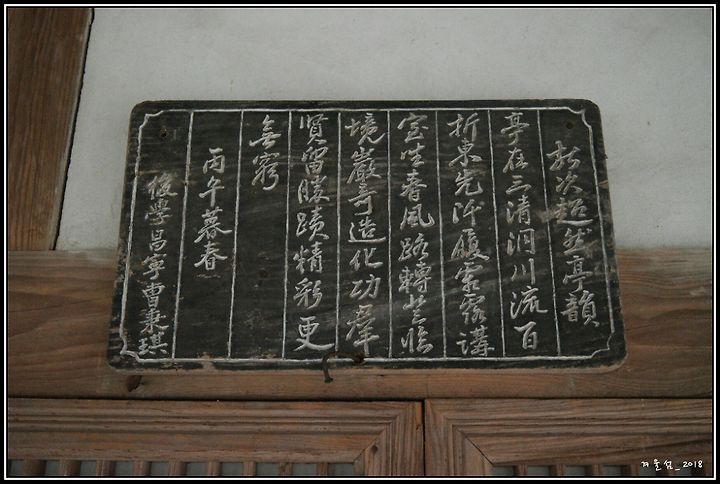 次超然亭韻
亭在三清洞川流百
折東先阡履霜露講
室坐春風路轉登臨
境巖奇造化功群
賢留勝蹟精彩更
無窮
丙午暮春
後學昌寧曹秉琪
겨울섬_2018